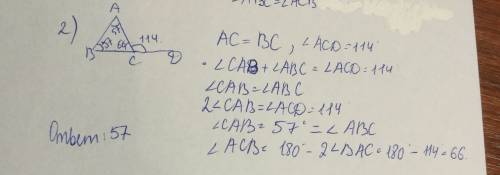 ∠ABC = ∠ACB
2)
A
57
114.
57 66
B C D
AC = BC, ∠ACD = 114°
∠CAB + ∠ABC = ∠ACD = 114°
∠CAB = ∠ABC
2∠CAB = ∠ACD = 114°
∠CAB = 57° = ∠ABC
∠ACB = 180° - 2∠BAC = 180° - 114° = 66.
Ответ: 57